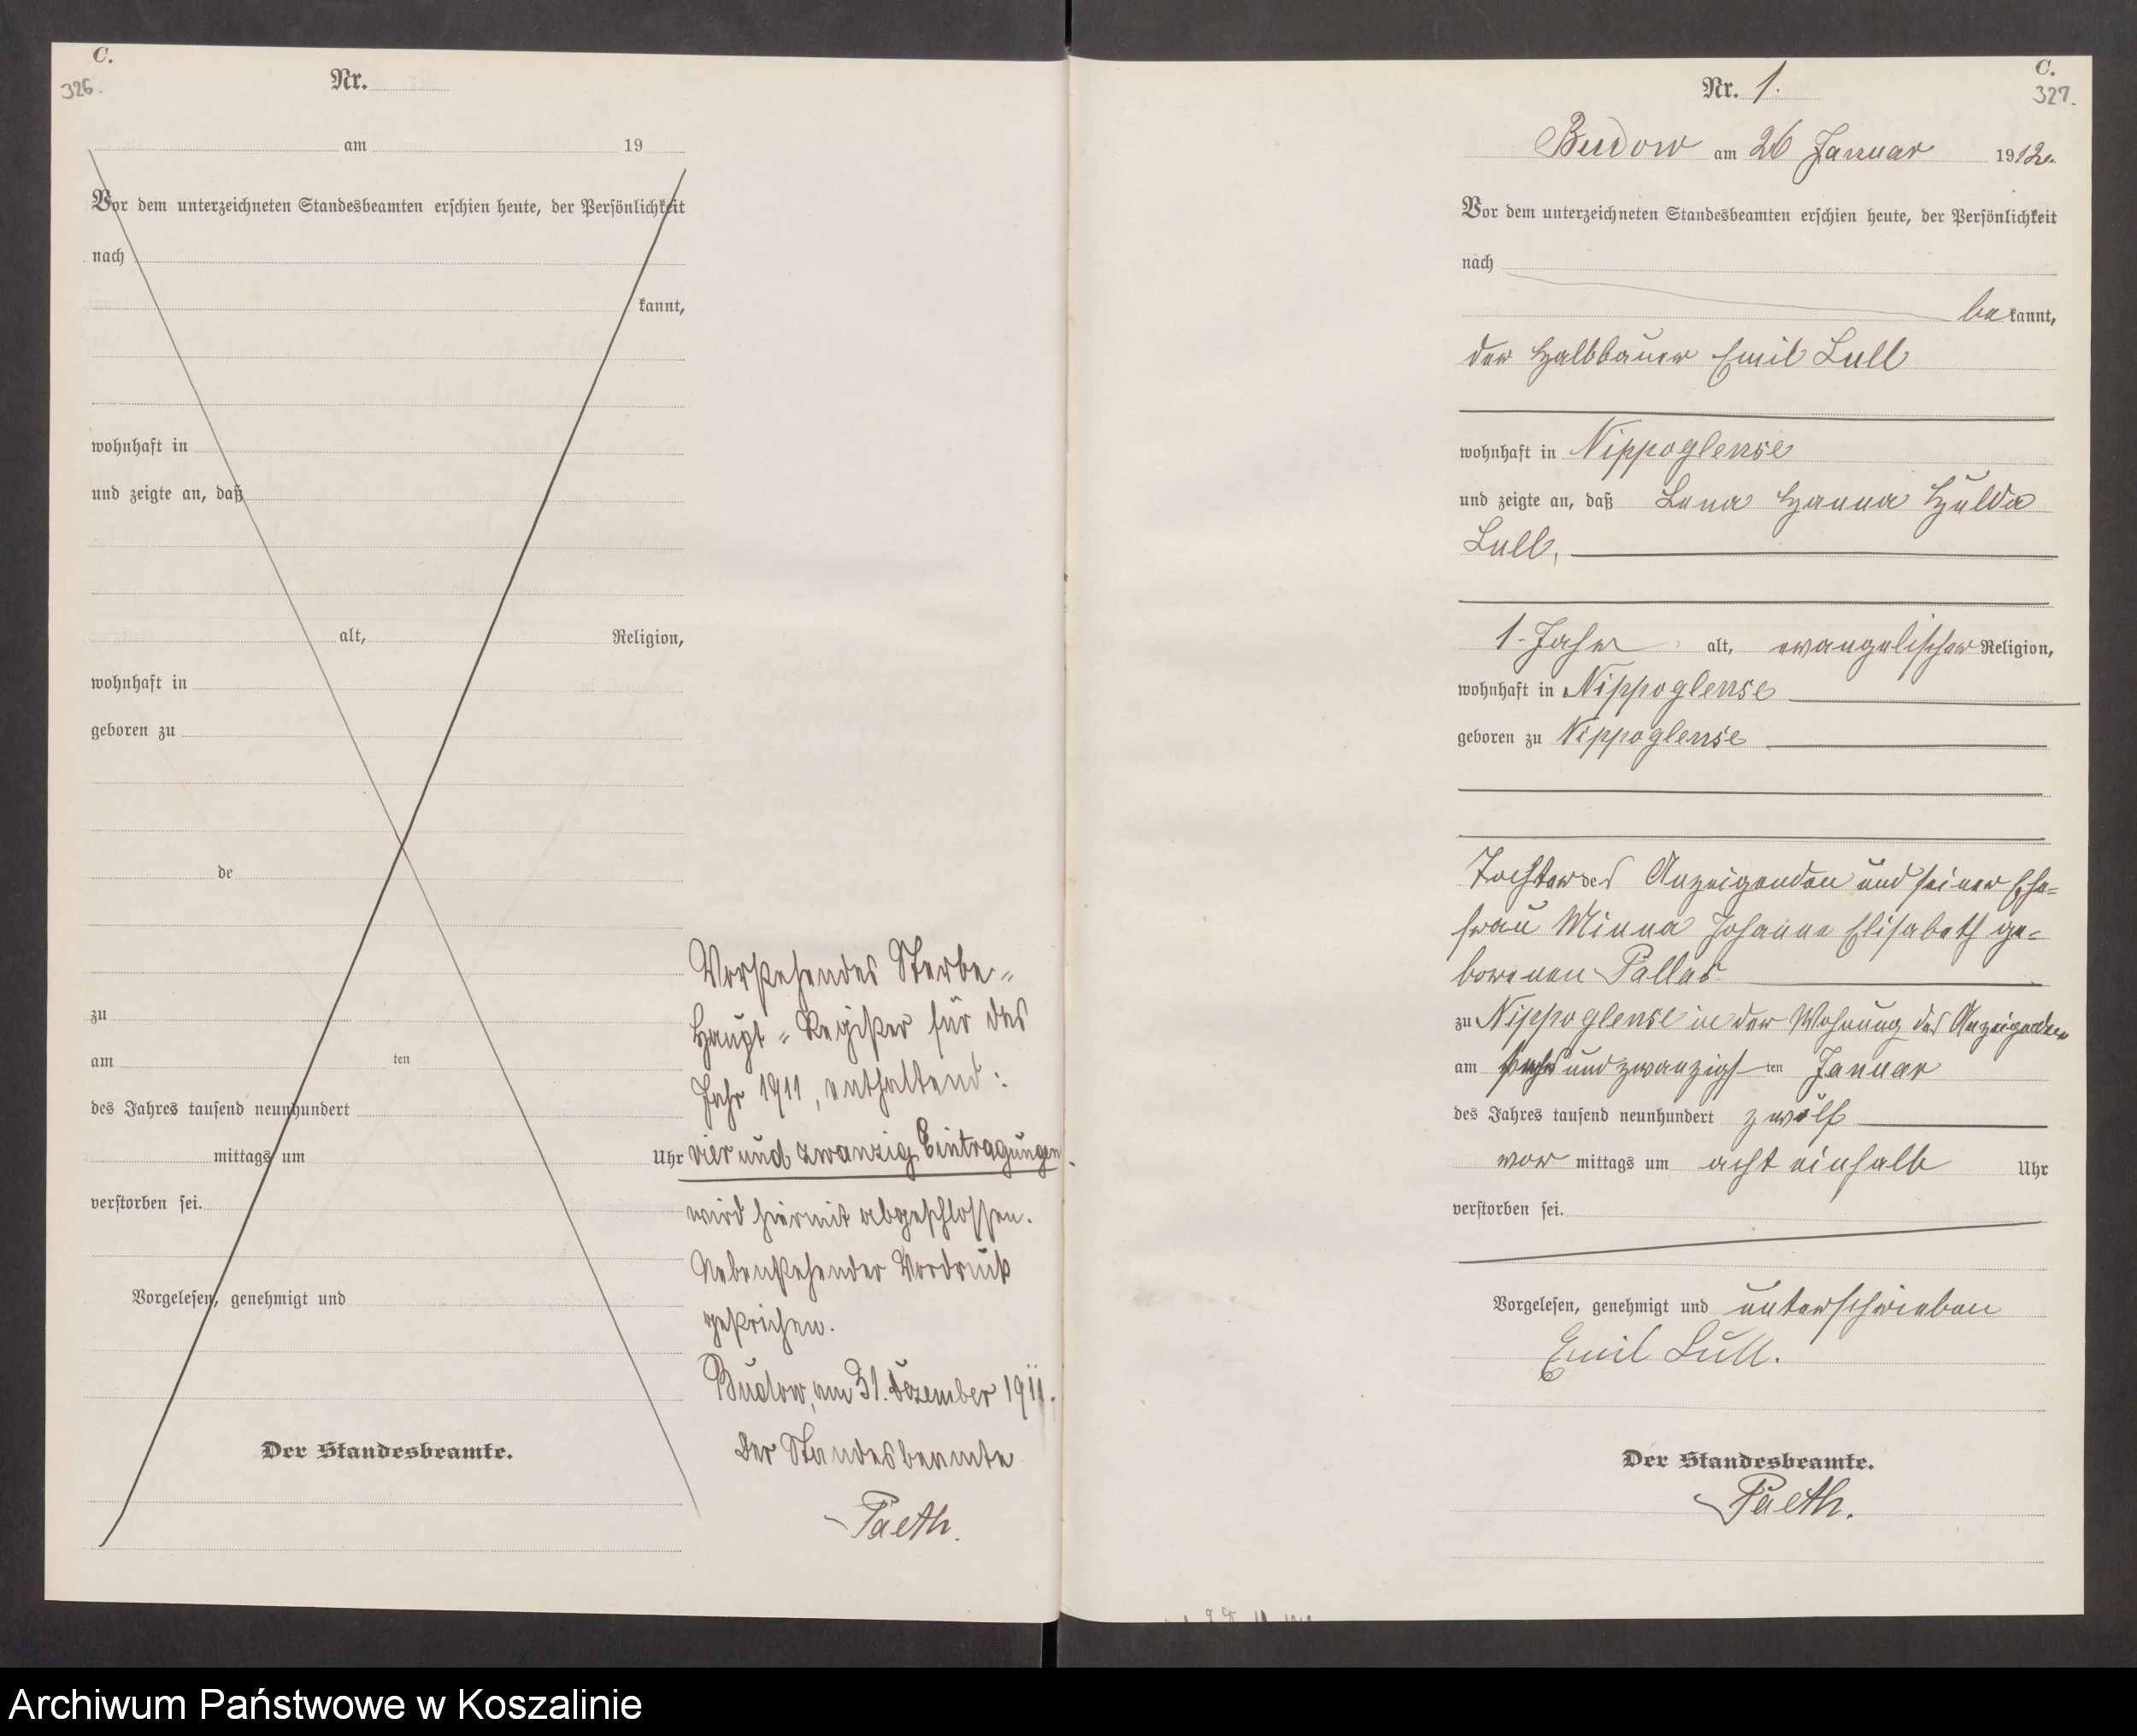 C.
326.
Nr.
am 19
Vor dem unterzeichneten Standesbeamten erschien heute, der Persönlichkeit
nach
kannt,
wohnhaft in
und zeigte an, daß
alt, Religion,
wohnhaft in
geboren zu
de
zu
am ten
des Jahres tausend neunhundert
mittags um Uhr
verstorben sei.
Vorgelesen, genehmigt und
Der Standesbeamte.
Vorstehendes Sterbe-
Haupt-Register für das
Jahr 1911, enthaltend:
vier und zwanzig Eintragungen.
wird hiermit abgeschlossen.
Nebenstehender Vordruck
gestrichen.
Budow, am 31. Dezember 1911.
Der Standesbeamte
Paeth.
C.
327.
Nr. 1.
Budow am 26 Januar 1912.
Vor dem unterzeichneten Standesbeamten erschien heute, der Persönlichkeit
nach
bekannt,
der Halbbauer Emil Lull
wohnhaft in Nippoglense
und zeigte an, daß Lena Hanna Hulda
Lull,
1 Jahr alt, evangelischer Religion,
wohnhaft in Nippoglense
geboren zu Nippoglense
Tochter des Anzeigenden und seiner Ehe-
frau Minna Johanne Elisabeth ge-
borenen Pallas
zu Nippoglense in der Wohnung des Anzeigenden
am sechsundzwanzigsten Januar
des Jahres tausend neunhundert zwölf
vor mittags um acht einhalb Uhr
verstorben sei.
Vorgelesen, genehmigt und unterschrieben
Emil Lull.
Der Standesbeamte.
Paeth.
Archiwum Państwowe w Koszalinie